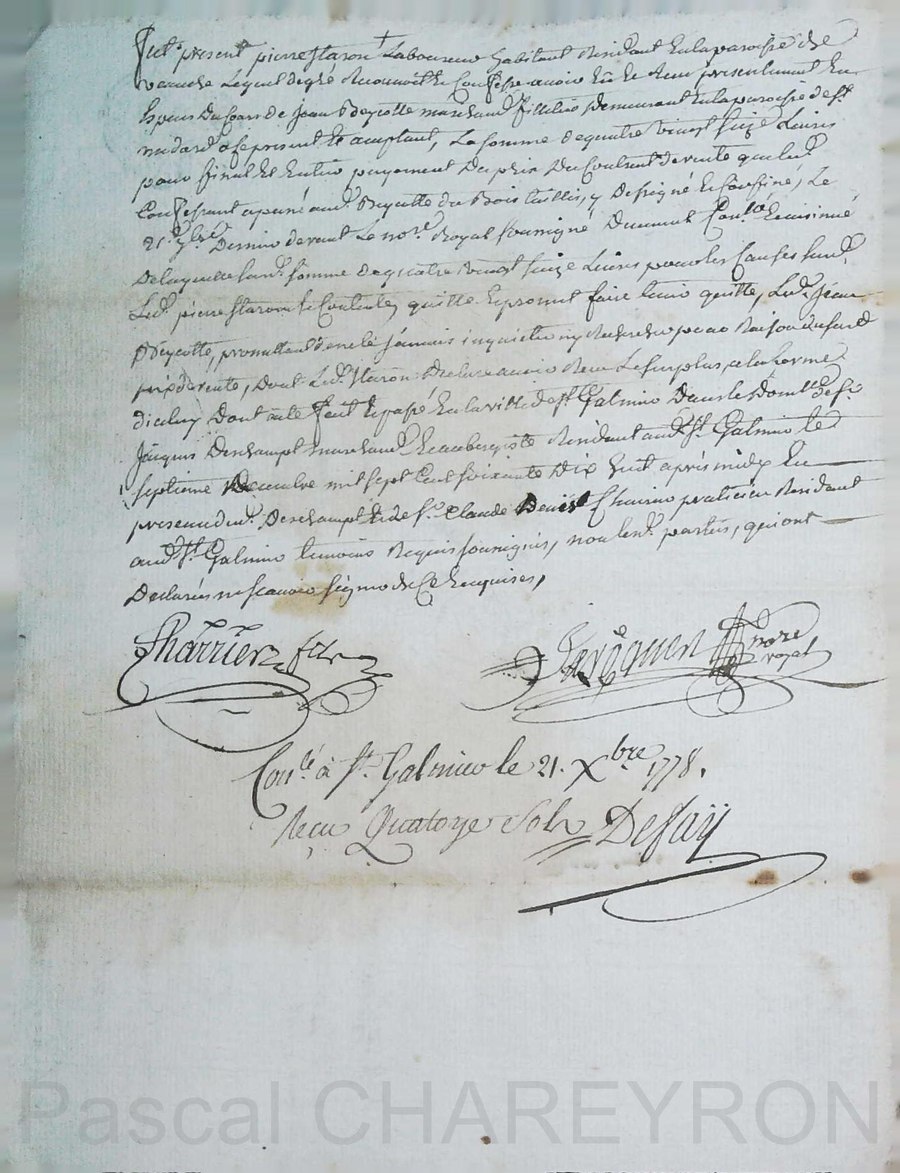 fut present pierre Staron Laboureur habitant Residant En la paroisse de
veauche Lequel de gré Reconnoit Et Confesse avoir Eû Et Receu presentement En
Especes Du Cours de Jean Peycotte marchand Demeurant En la paroisse de St
medard present Et aceptant, La somme de quatre vingt seize Livres
pour final Et Entier payement Du prix Du Contrat de vente que led.
Confessant a passé aud. Peycotte du Bois taillis, y Designé Et Confiné, Le
21e. 7bre Dernier devant Le nore. Royal soussigné Duement Con.lé
De laquelle susd. somme de quatre vingt seize Livres pour les Causes susd.
Led. pierre Staron se Contente, quitte Et promet faire tenir quitte, Led. Jean
Peycotte, promettant de ne le jamais inquietter ny Rechercher pour Raison dususd
prix de vente, Dont Led. Staron Declare avoir Receu Le surplus a la forme
d'iceluy Dont acte fait Et passé En la ville de St. Galmier Dans le Domlle de Sr.
Jacques Deschampt marchand Et aubergiste Residant aud. St. Galmier le
septieme Decembre mil sept Cent soixante Dix huit après midy En
presence dud. Deschampt Et de Sr. Claude Denis Charrier praticien Residant
aud. St. Galmier temoins Requis soussignés, non lesd. parties, qui ont
Declarés ne scavoir signer de Ce Enquises,
Charrier fils
nore royal
Con.lé à St. Galmier le 21. Xbre 1778.
Reçu Quatorze Sols Defaÿ
Pascal CHAREYRON